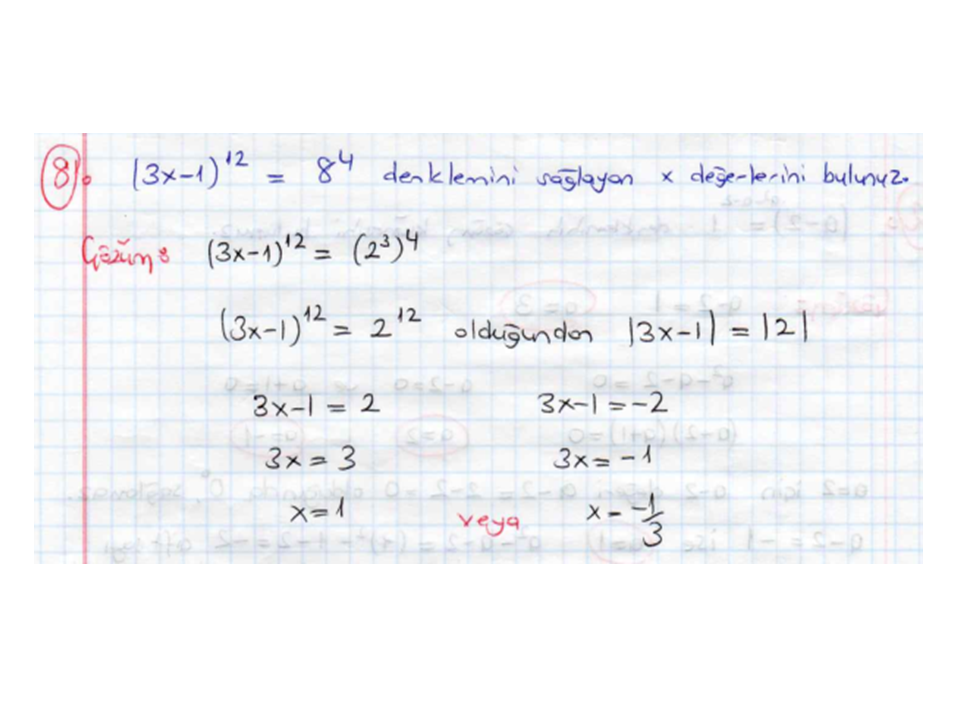 8. (3x-1)^12 = 8^4 denklemini sağlayan x değerlerini bulunuz.
Çözüm: (3x-1)^12 = (2^3)^4
(3x-1)^12 = 2^12 olduğundan |3x-1| = |2|
3x-1 = 2 3x-1 = -2
3x = 3 3x = -1
x=1 veya x = -1/3